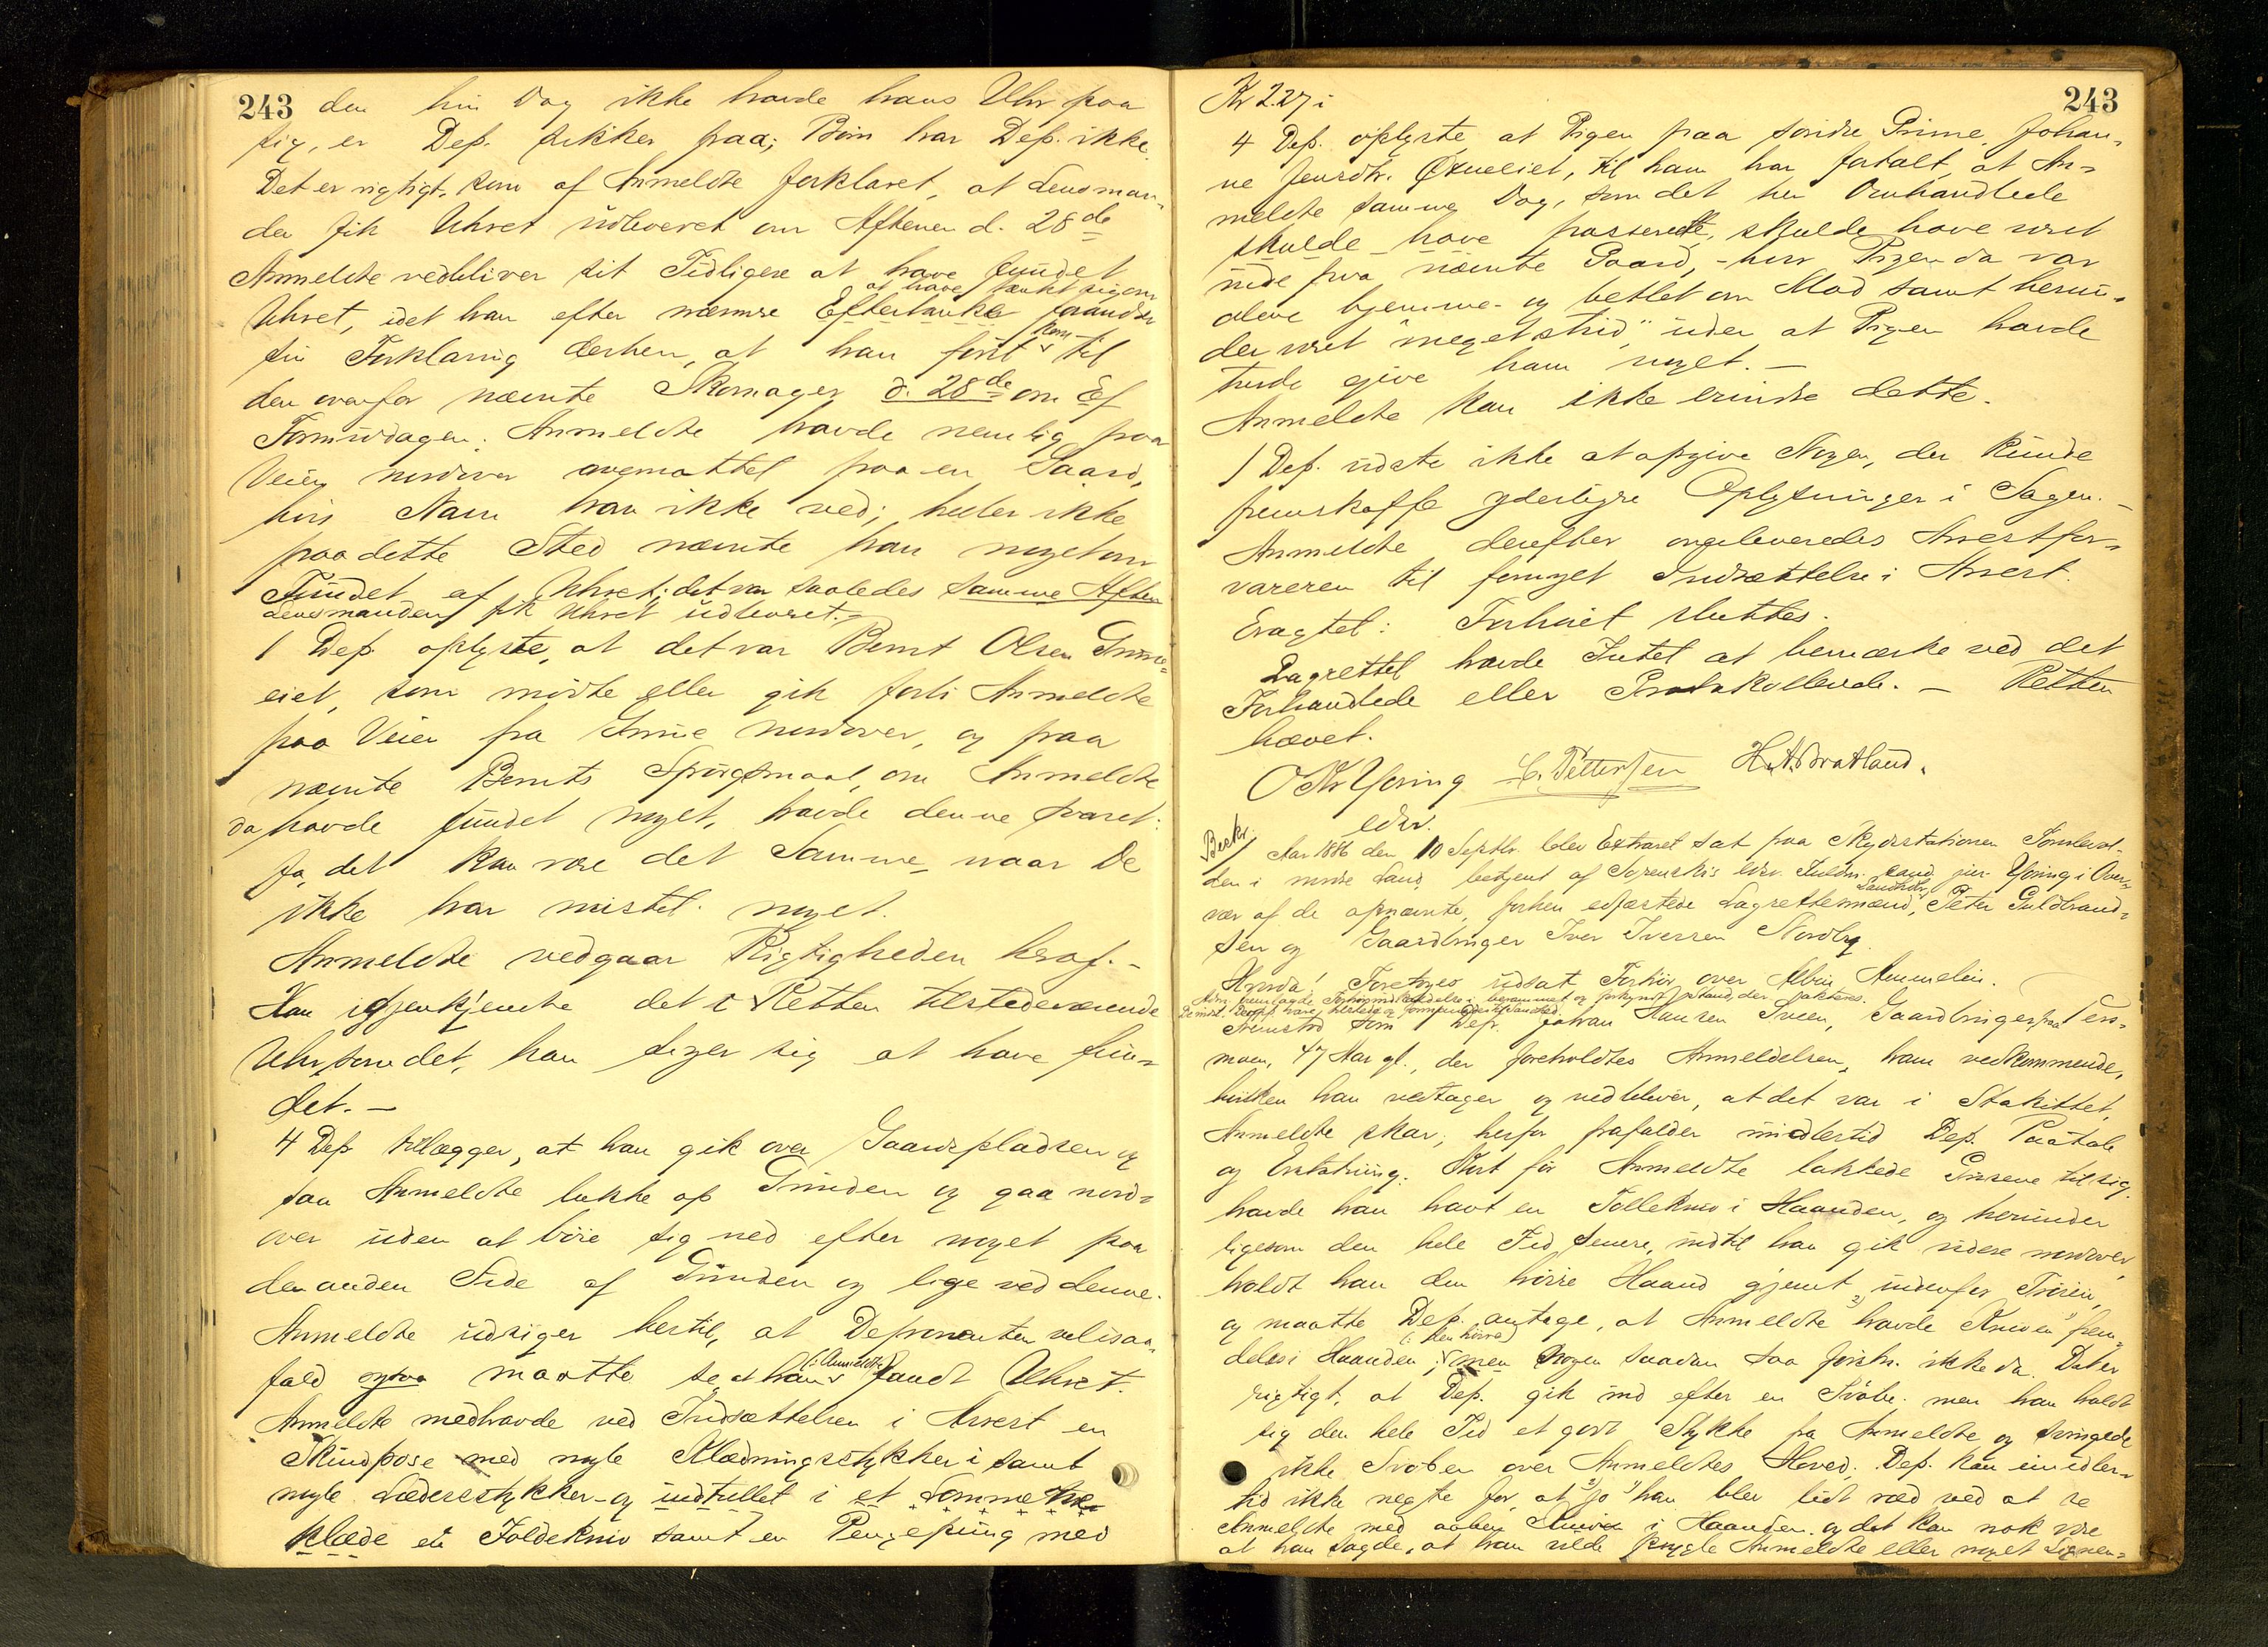 243 den hin Dag ikke havde hans Uhr paa
sig, er Dep. sikker paa; Børn har Dep. ikke.
Det er rigtigt, som af Anmeldte forklaret, at Lensman-
den fik Uhret udleveret om Aftenen d. 28de
Anmeldte vedbliver sit Tidligere at have fundet
at have tænkt sig om
Uhret, idet han efter nærmere Eftertanke forandrer
sin Forklaring derhen, at han først kom til
den ovenfor nævnte Skomager d. 28de om Ef
Formiddagen. Anmeldte havde nemlig paa
Veien nordover overnattet paa en Gaard,
hvis Navn han ikke ved; heller ikke
paa dette Sted nævnte han noget om
Fundet af Uhret; det var saaledes samme Aften
Lensmanden fik Uhret udleveret.
1 Dep. oplyste, at det var Bernt Olsen
eiet, som mødte eller gik forbi Anmeldte
paa Veien fra nordover, og paa
nævnte Bernts Spørgsmaal, om Anmeldte
da havde fundet noget, havde denne svaret:
Ja, det kan være det Samme, naar De
ikke har mistet noget.
Anmeldte vedgaar Rigtigheden heraf. –
Han igjenkjendte det i Retten tilstedeværende
Uhr, som det, han siger sig at have fun-
det. –
4 Dep. tillægger, at han gik over Gaardspladsen og
saa Anmeldte lukke op Grinden og gaa nord-
over uden at bøie sig ned efter noget paa
den anden Side af Grinden og lige ved denne.
Anmeldte udsiger hertil, at Deponenten velisaa-
fald maatte se at han (: Anmeldte) fandt Uhret.
Anmeldte medhavde ved Indsættelsen i Arrest en
Skindpose med nogle Klædningsstykker i samt
nogle Læderstykker og indtullet i et Lommetør-
klæde en Foldekniv samt en Pengepung med
Kr 2.27 i
243
4 Dep. oplyste at Pigen paa søndre Johan-
ne Jensdtr. til ham har fortalt, at An-
meldte samme Dag, som det her Omhandlede
skulde have passeret, skulde have været
inde paa nævnte Gaard, – hvor Pigen da var
alene hjemme – og betlet om Mad samt herun-
der været "meget strid", uden at Pigen havde
turde give ham noget. –
Anmeldte kan ikke erindre dette.
1 Dep. vidste ikke at opgive Nogen, der kunde
fremskaffe yderligere Oplysninger i Sagen. –
Anmeldte derefter overleveredes Arrestfor-
vareren til fornyet Indsættelse i Arrest.
Eragtet: Forhøret sluttes.
Lagrettet havde Intet at bemærke ved det
Forhandlede eller Protokollerede. – Retten
hævet.
O Kr Yoring C. Pettersen H. A. Bratland.
edsv.
Berkr.
Aar 1886 den 10 Septbr. blev Extraret sat paa Skydsstationen
den i nordre Land, betjent af Sorenskrs edsv. Fuldm. cand. jur. Yoring i Over-
vær af de opnævnte, forhen edfæstede Lagrettesmænd, Landhdlr. Peter Guldbrand-
sen og Gaardbruger Iver Iversen Nordby.
Hvorda! Foretoges udsat Forhør over Albin
Fremstod som 1 Dep. Johan Hansen Sveen, Gaardbruger, paa
moen, 47 Aar gl., der foreholdtes Anmeldelsen, ham vedkommende,
hvilken han vedtager og vedbliver, at det var i Stakittet,
Anmeldte skar; herfor frafalder imidlertid Dep. Paatale
og Erstatning. Kort før Anmeldte lokkede Grisene til sig,
havde han havt en Tollekniv i Haanden, og herunder
ligesom den hele Tid senere, indtil han gik videre nordover,
holdt han den høire Haand gjemt indenfor Trøien,
og maatte Dep. antage, at Anmeldte havde Kniven frem-
deles i Haanden (: den høire); men Nogen saadan saa ikke da. Det er
rigtigt, at Dep. gik ind efter en Svøbe, men han holdt
sig den hele Tid et godt Stykke fra Anmeldte og svingede
ikke Svøben over Anmeldtes Hoved. Dep. kan imidler-
tid ikke negte for, at jo han blev lidt ræd ved at se
Anmeldte med aaben Kniv i Haanden, og det kan nok være
at han sagde, at han vilde prygle Anmeldte eller noget Lignen-